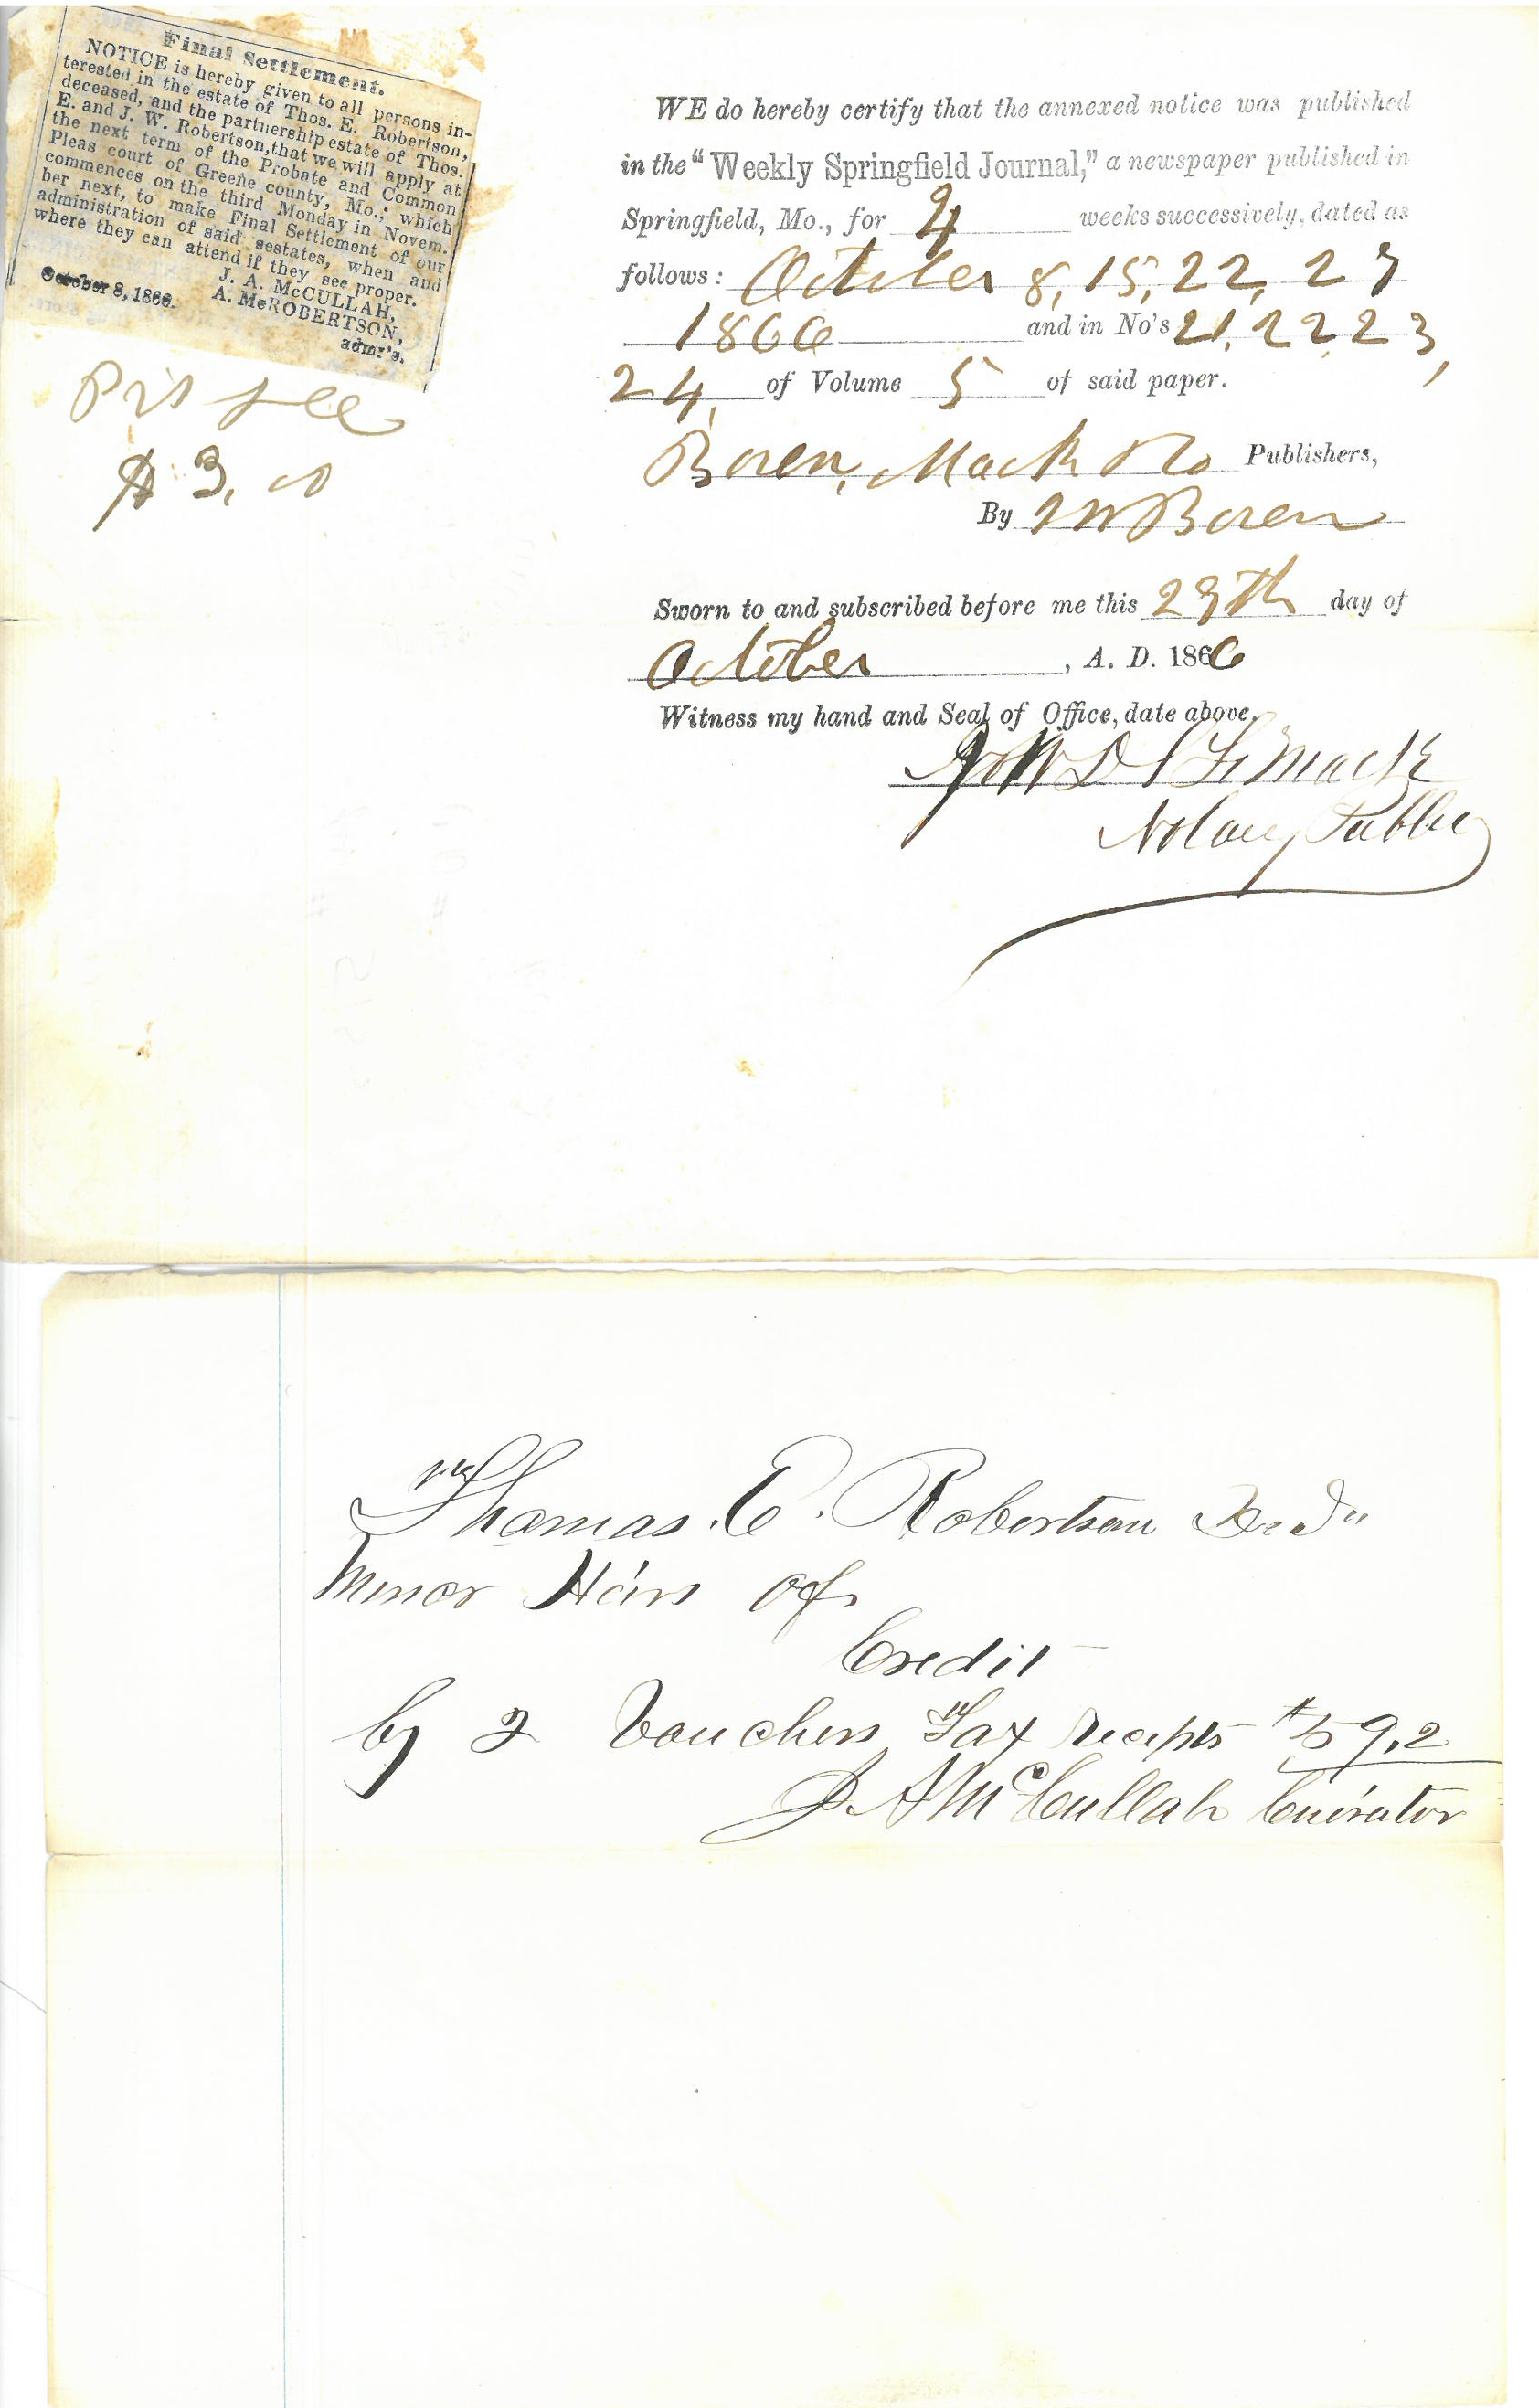 Final Settlement.
NOTICE is hereby given to all persons in-
terested in the estate of Thos. E. Robertson,
deceased, and the partnership estate of Thos.
E. and J. W. Robertson, that we will apply at
the next term of the Probate and Common
Pleas court of Greene county, Mo.; which
commences on the third Monday in Novem-
ber next, to make Final Settlement of our
administration of said sestates, when and
where they can attend if they see proper.
J. A. McCULLAH,
A. McROBERTSON,
admr's.
October 8, 1866.
Prs fee
$3,00
WE do hereby certify that the annexed notice was published
in the "Weekly Springfield Journal," a newspaper published in
Springfield, Mo., for 4 weeks successively, dated as
follows: October 8, 15, 22, 29
1866 and in No's 21, 22, 23,
24, of Volume 5 of said paper.
Boren, Mack & Co Publishers,
By Boren
Sworn to and subscribed before me this 29th day of
October, A. D. 1866
Witness my hand and Seal of Office, date above.
Mack
Notary Public
Thomas E. Robertson Decd
Minor Heirs of
Credit
by 2 Vouchers Tax recepts $59,2
J. A McCullah Curator